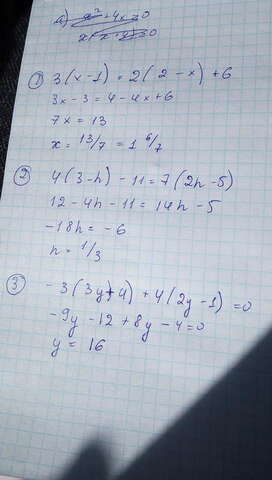 ① 3(x-1) = 2(2-x)+6
3x-3 = 4-4x+6
7x = 13
x = 13/7 = 1 6/7
② 4(3-h)-11 = 7(2h-5)
12-4h-11 = 14h-5
-18h = -6
h = 1/3
③ -3(3y+4)+4(2y-1)=0
-9y-12+8y-4=0
y = 16